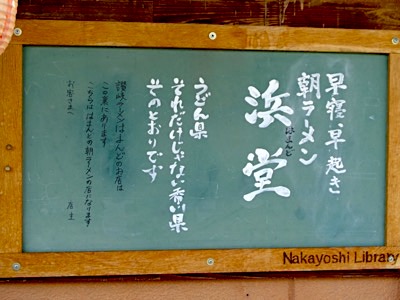 早寝・早起き
朝ラーメン
浜堂
はまんど
うどん県
それだけじゃない香川県
そのとおりです
讃岐ラーメンはまんどのお店は
この裏にあります
こちらは はまんどの朝ラーメンの店になります
お客さまへ
店主
Nakayoshi Library